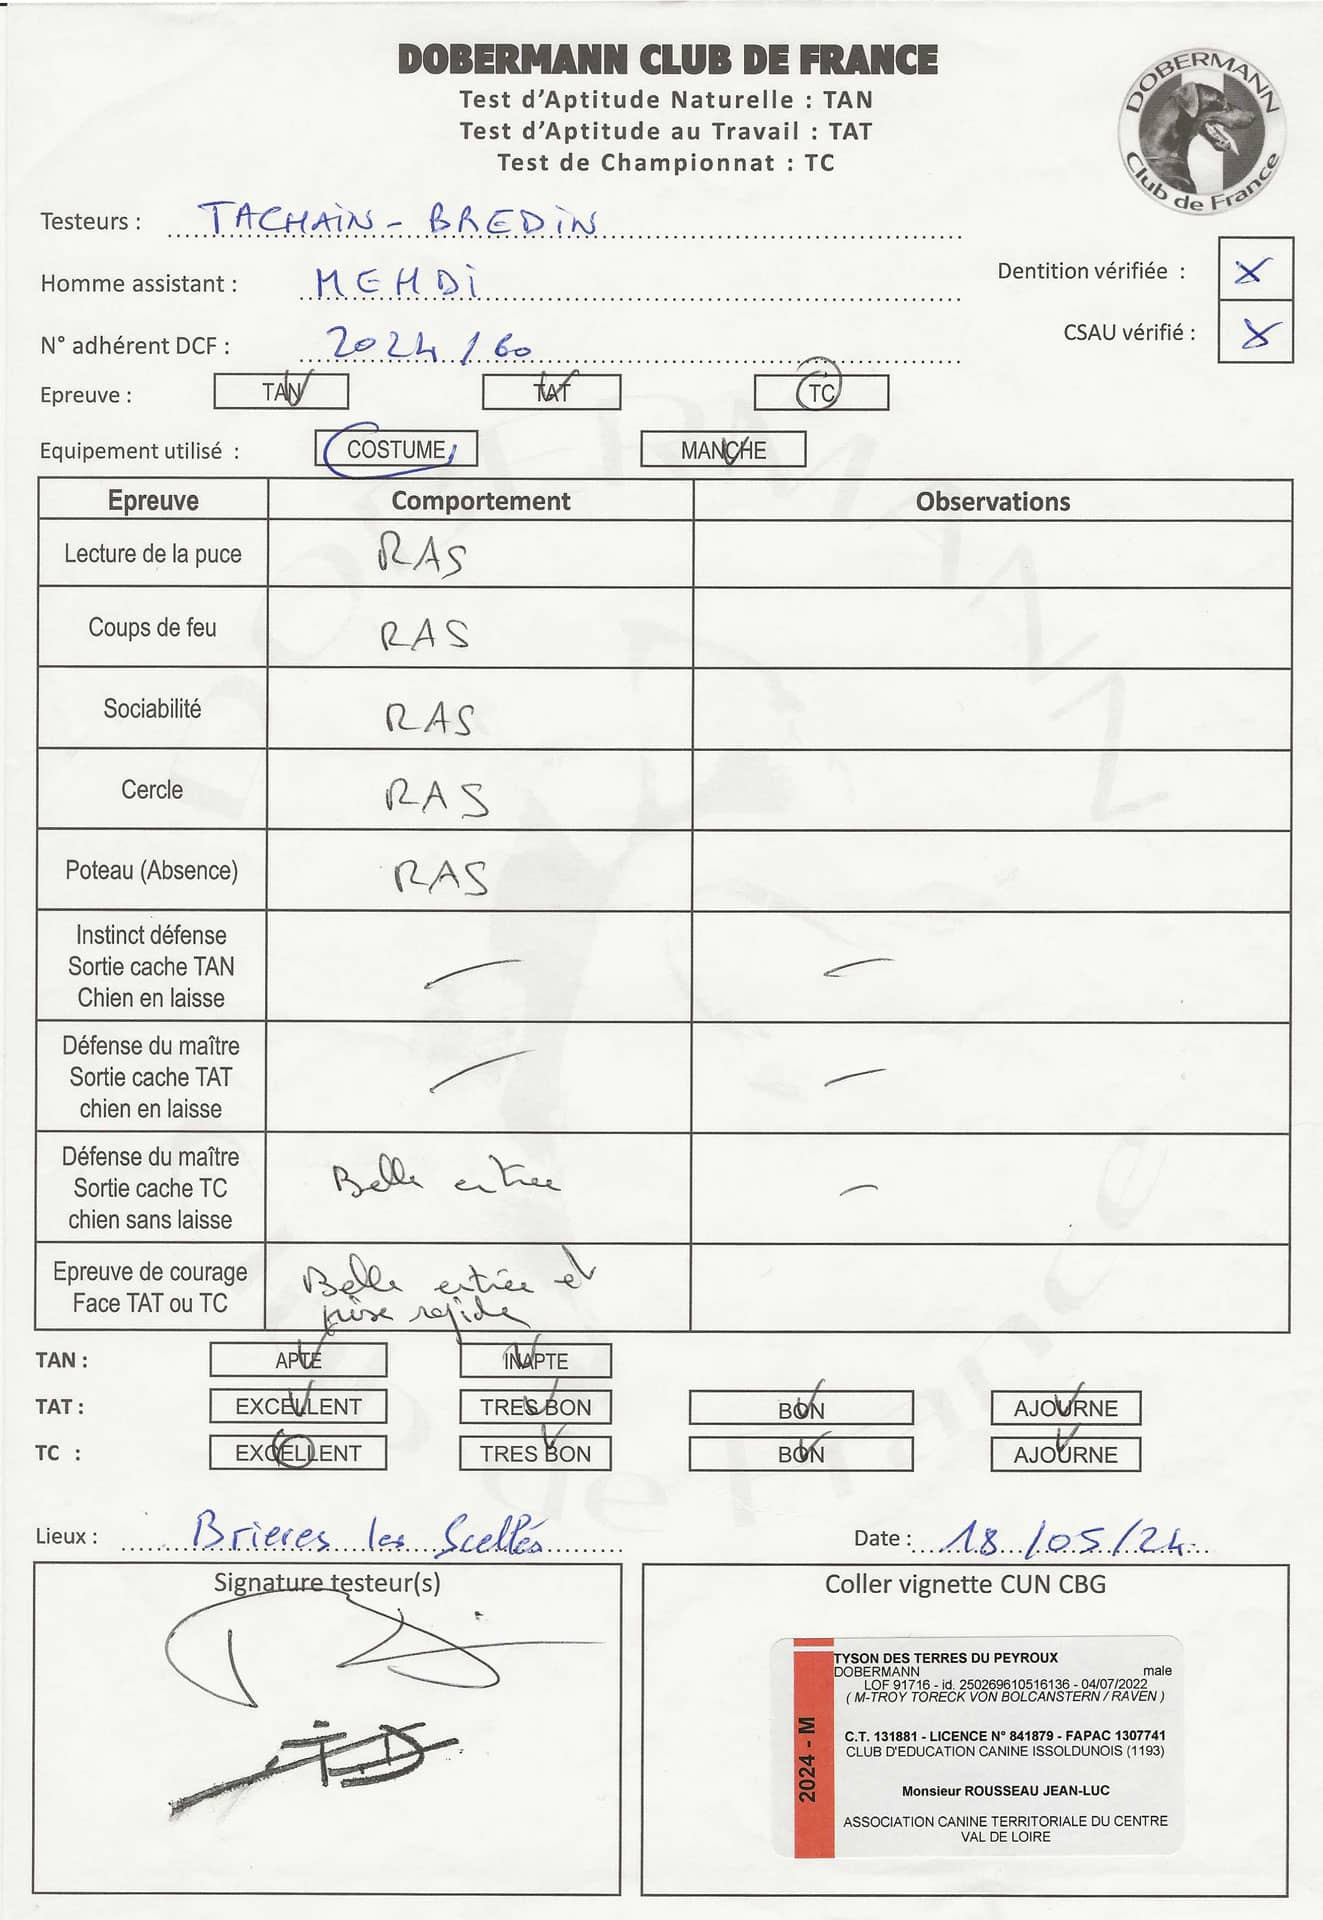 DOBERMANN CLUB DE FRANCE
Test d'Aptitude Naturelle : TAN
Test d'Aptitude au Travail : TAT
Test de Championnat : TC
DOBERMANN
Club de France
Testeurs : TACHAIN - BREDIN
Homme assistant : MEHDI
Dentition vérifiée : X
N° adhérent DCF : 2024/60
CSAU vérifié : X
Epreuve : TAN TAT TC
Equipement utilisé : COSTUME MANCHE
Epreuve Comportement Observations
Lecture de la puce RAS
Coups de feu RAS
Sociabilité RAS
Cercle RAS
Poteau (Absence) RAS
Instinct défense
Sortie cache TAN
Chien en laisse
Défense du maître
Sortie cache TAT
chien en laisse
Défense du maître
Sortie cache TC
chien sans laisse
Belle entrée
Epreuve de courage
Face TAT ou TC
Belle entrée et
prise rapide
TAN : APTE INAPTE
TAT : EXCELLENT TRES BON BON AJOURNE
TC : EXCELLENT TRES BON BON AJOURNE
Lieux : Brieres les Scellés
Date : 18/05/24
Signature testeur(s)
Coller vignette CUN CBG
2024 - M
TYSON DES TERRES DU PEYROUX
DOBERMANN male
LOF 91716 - id. 250269610516136 - 04/07/2022
( M-TROY TORECK VON BOLCANSTERN / RAVEN )
C.T. 131881 - LICENCE N° 841879 - FAPAC 1307741
CLUB D'EDUCATION CANINE ISSOLDUNOIS (1193)
Monsieur ROUSSEAU JEAN-LUC
ASSOCIATION CANINE TERRITORIALE DU CENTRE
VAL DE LOIRE